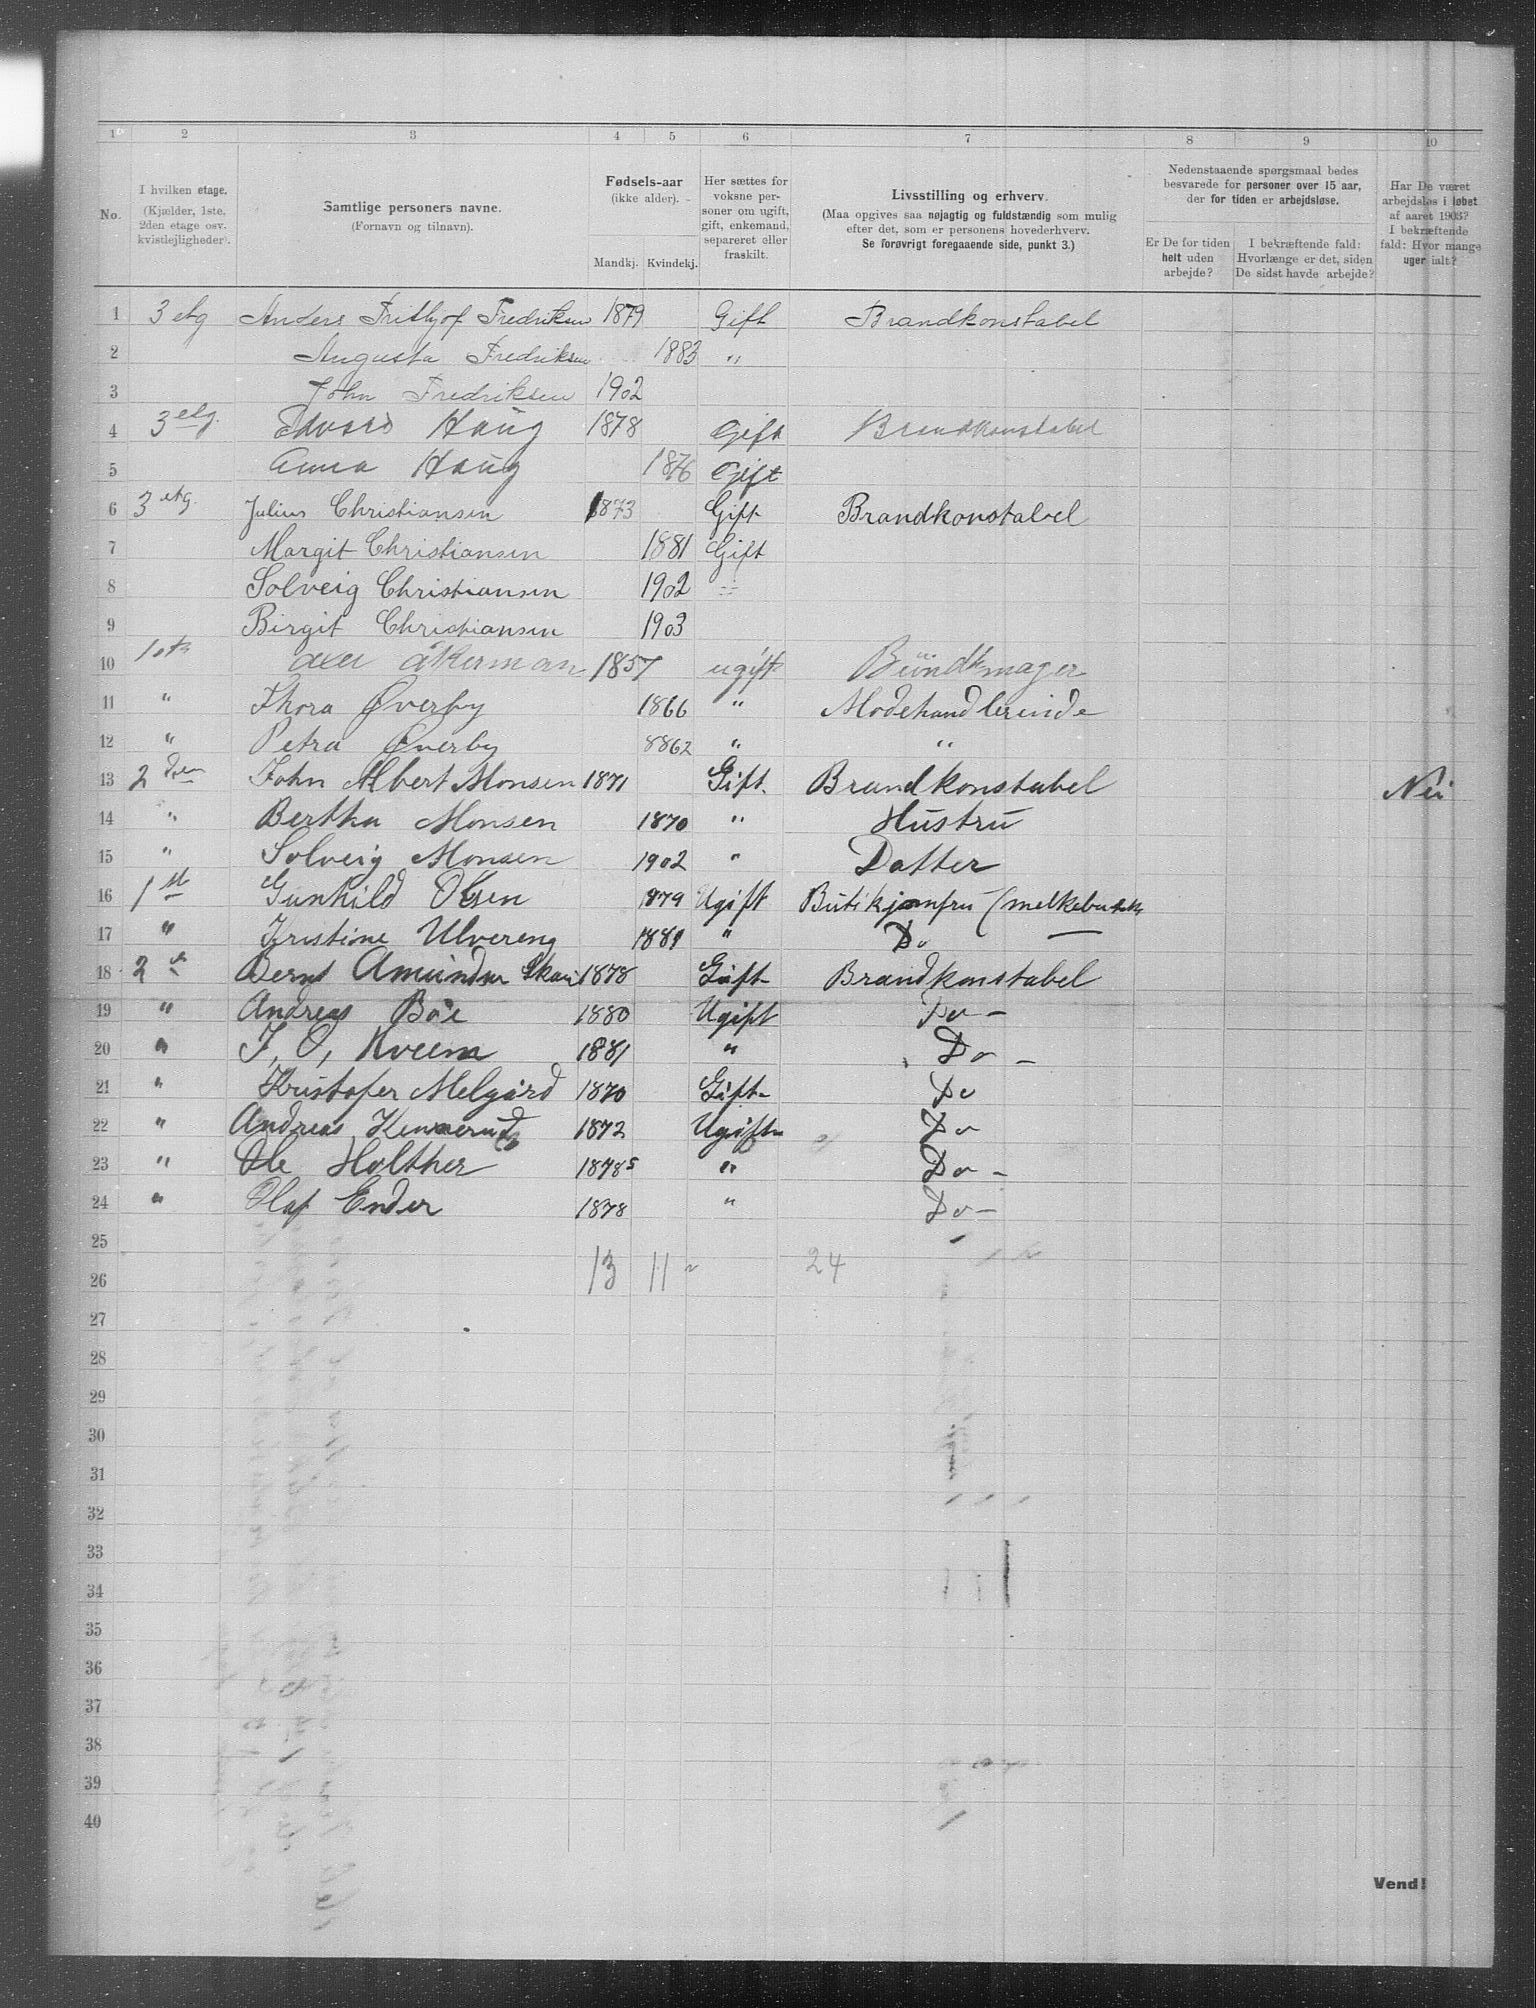 1 2 3 4 5 6 7 8 9 10
No. I hvilken etage. (Kjælder, 1ste, 2den etage osv. kvistlejligheder). Samtlige personers navne. (Fornavn og tilnavn). Fødsels-aar (ikke alder). Mandkj. Kvindekj. Her sættes for voksne personer om ugift, gift, enkemand, separeret eller fraskilt. Livsstilling og erhverv. (Maa opgives saa nøjagtig og fuldstændig som mulig efter det, som er personens hovederhverv. Se forøvrigt foregaaende side, punkt 3.) Nedenstaaende spørgsmaal bedes besvarede for personer over 15 aar, der for tiden er arbejdsløse. Er De for tiden helt uden arbejde? I bekræftende fald: Hvorlænge er det, siden De sidst havde arbejde? Har De været arbejdsløs i løbet af aaret 1903? I bekræftende fald: Hvor mange uger ialt?
1 3 etg Anders Frithjof Fredriksen 1879 Gift Brandkonstabel
2 Augusta Fredriksen 1883 "
3 John Fredriksen 1902
4 3 etg. Edvard Haug 1878 Gift Brandkonstabel
5 Anna Haug 1876 Gift
6 3 etg. Julius Christiansen 1873 Gift Brandkonstabel
7 Margit Christiansen 1881 Gift
8 Solveig Christiansen 1902 "
9 Birgit Christiansen 1903
10 åkerman 1857 ugift Bundtmager
11 " Thora Øverby 1866 " Modehandlerinde
12 " Petra Øverby 8862 " "
13 2 den John Albert Monsen 1871 Gift. Brandkonstabel Nei
14 " Bertha Monsen 1870 " Hustru
15 " Solveig Monsen 1902 " Datter
16 1 st Gunhild Olsen 1879 Ugift Butikjomfru (melkebutik
17 " Kristine Ulvereng 1881 " Do —
18 2 Bernt Amundsen 1878 Gift Brandkonstabel
19 " Andreas Böe 1880 Ugift Do -
20 " J, O, Kveem 1881 " Do -
21 " Kristofer Melgård 1870 Gift Do
22 " Andreas 1872 Ugift Do
23 " Ole Holther 1878 " Do -
24 " Olaf Ender 1878 " Do -
25
26 13 11 24
27
28
29
30
31
32
33
34
35
36
37
38
39
40
Vend!